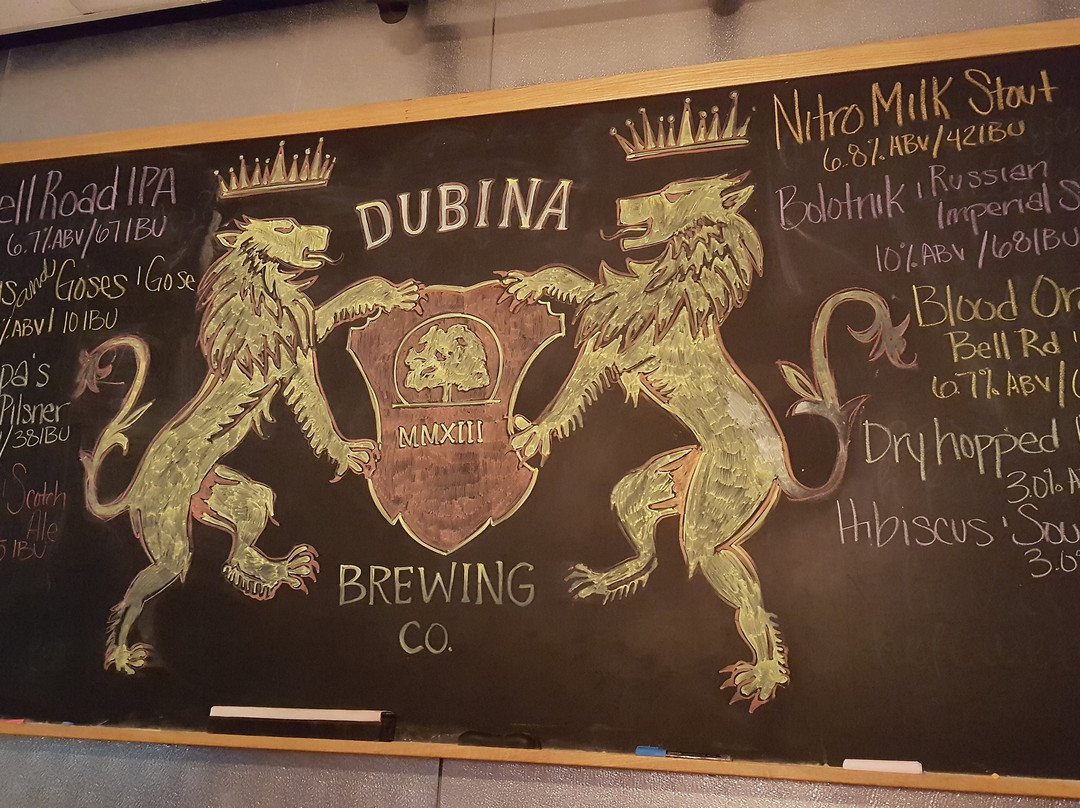 ell Road IPA
6.7% ABV/67 IBU
and Goses ' Gose
% ABV/ 10 IBU
pa's
Pilsner
/38 IBU
' Scotch
Ale
5 IBU
DUBINA
MMXIII
BREWING
CO.
Nitro Milk Stout
6.8% ABV/42 IBU
Bolotnik ' Russian
Imperial S
10% ABV /68 IBU
Blood Or
Bell Rd '
6.7% ABV/6
Dry hopped
3.0% A
Hibiscus ' Sou
3.0%